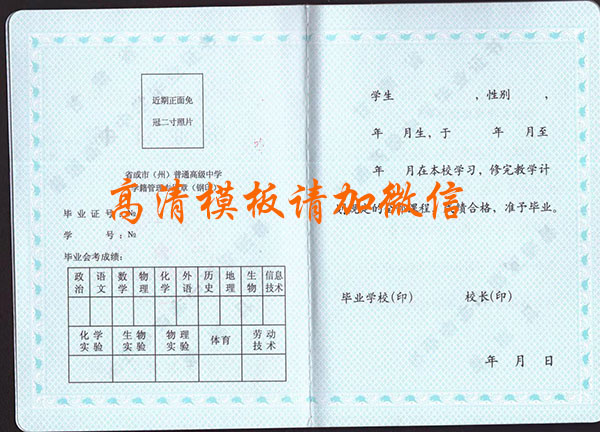 近期正面免
冠二寸照片
省或市（州）普通高级中学
学籍管理专用章（钢印）
毕业证号：№
学 号：№
毕业会考成绩：
政治 语文 数学 物理 化学 外语 历史 地理 生物 信息技术
化学实验 生物实验 物理实验 体育 劳动技术
学生 ，性别 ，
年 月生，于 年 月至
年 月在本校学习，修完教学计
划规定的 课程， 成绩合格，准予毕业。
毕业学校(印) 校长(印)
年 月 日
高清模板请加微信